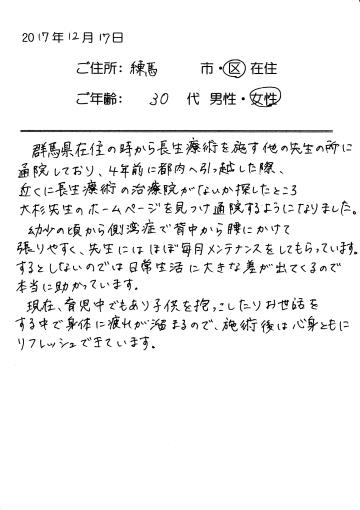 2017年12月17日
ご住所: 練馬 市・区 在住
ご年齢: 30 代 男性・女性
群馬県在住の時から長生療術を施す他の先生の所に
通院しており、4年前に都内へ引っ越した際、
近くに長生療術の治療院がないか探したところ
大杉先生のホームページを見つけ通院するようになりました。
幼少の頃から側湾症で背中から腰にかけて
張りやすく、先生にはほぼ毎月メンテナンスをしてもらっています。
するとしないのでは日常生活に大きな差が出てくるので
本当に助かっています。
現在、育児中でもあり子供を抱っこしたりお世話を
する中で身体に疲れが溜まるので、施術後は心身ともに
リフレッシュできています。